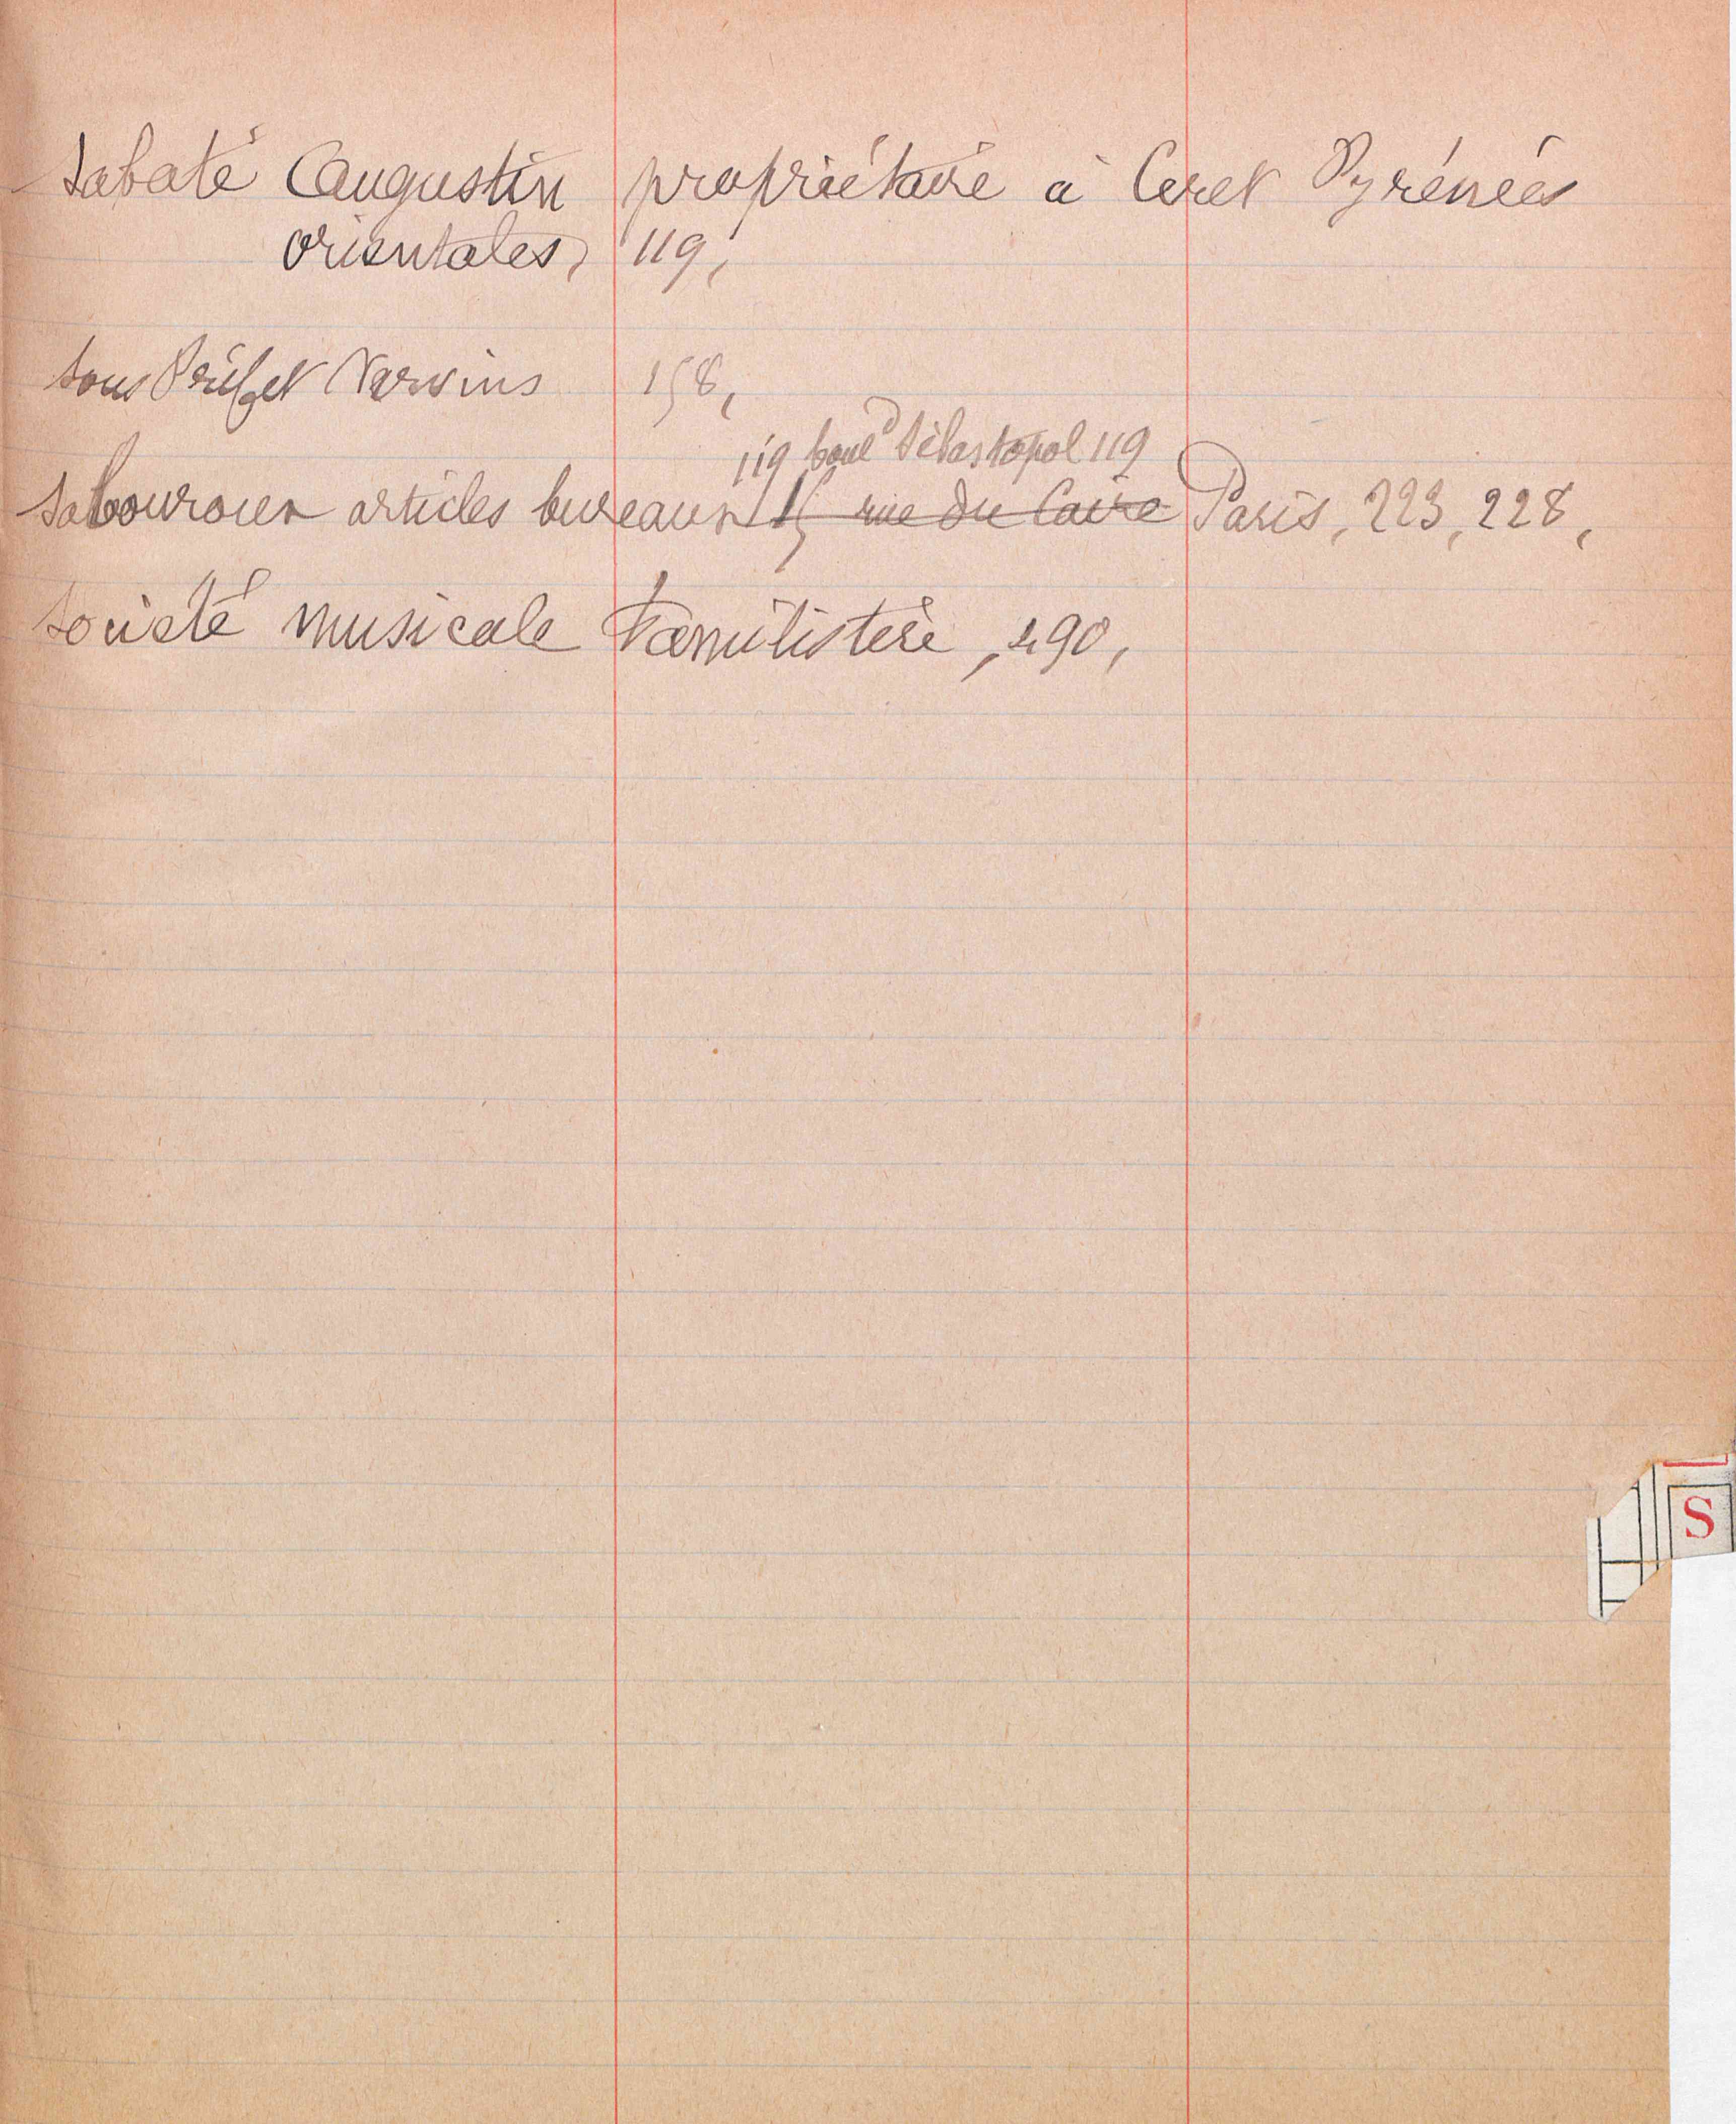 Sabaté Augustin propriétaire à Ceret Pyrénées
Orientales, 119,
Sous Préfet Vervins 158,
119 boul^d Sébastopol 119
Sabouroux articles bureaux 15 rue du Caire Paris, 223, 228,
Société musicale Familistère, 490,
S